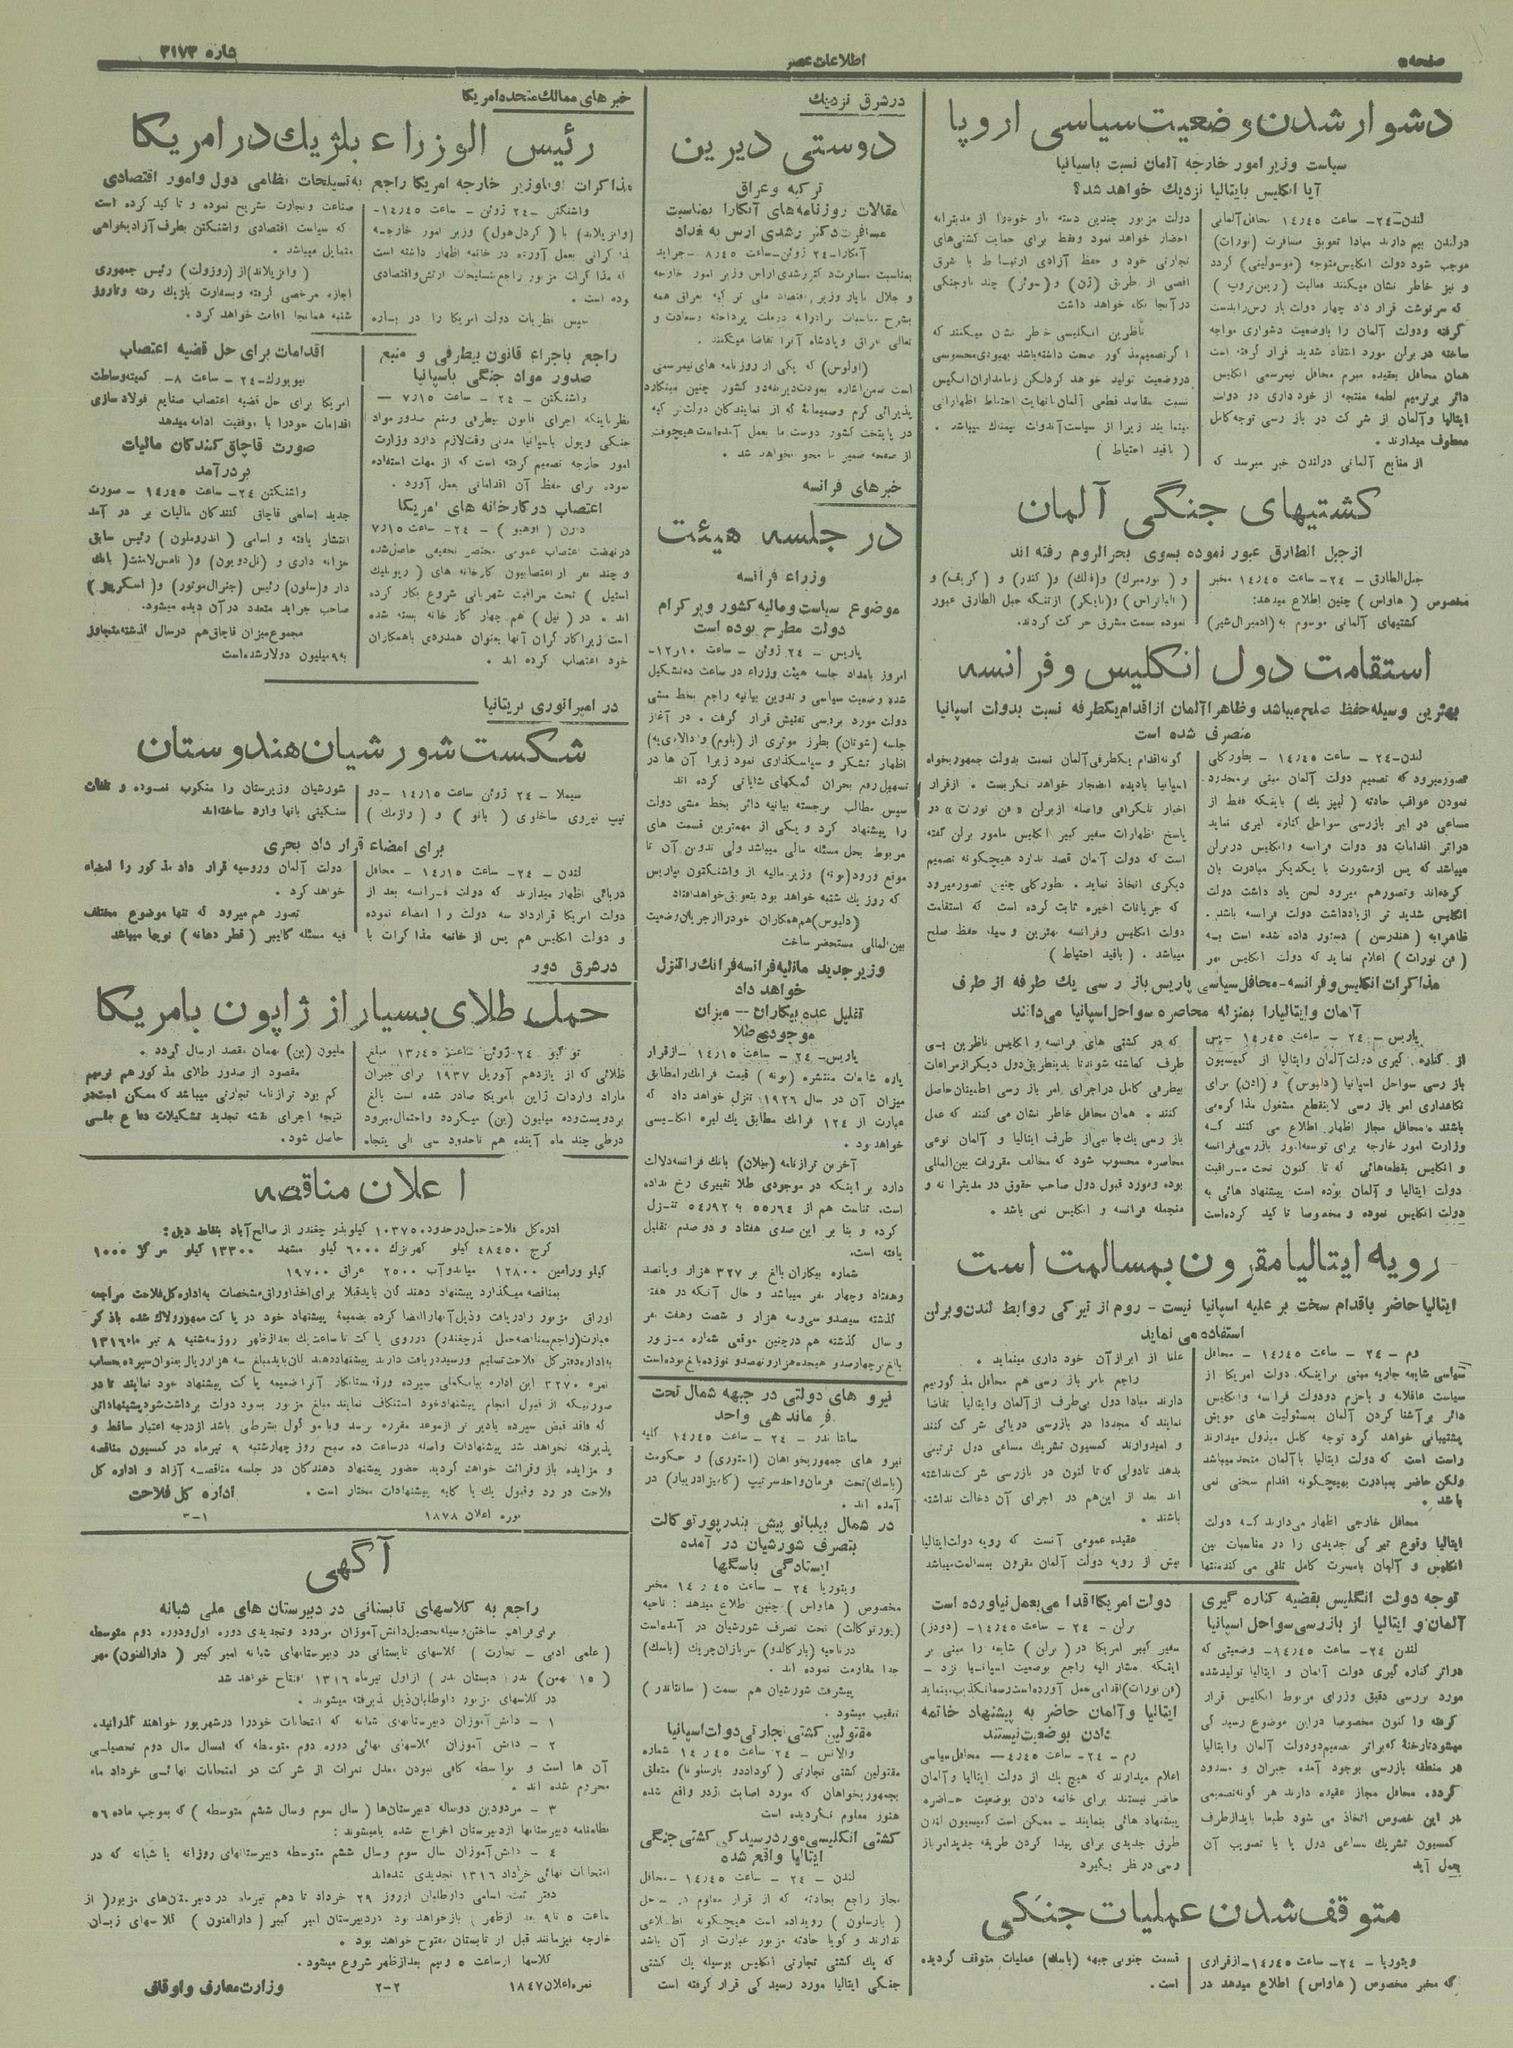 صفحه ۵
اطلاعات عصر
شماره ۳۱۷۳
دشوار شدن وضعیت سیاسی اروپا
سیاست وزیر امور خارجه آلمان نسبت باسپانیا
آیا انگلیس بایتالیا نزدیک خواهد شد؟
لندن-۲۴- ساعت ۱۴٫۴۵ محافل آلمانی
درلندن بیم دارند مبادا تعویق مسافرت (نورات)
موجب شود دولت انگلیس متوجه (موسولینی) گردد
و نیز خاطر نشان میکنند فعالیت (ریبن تروپ)
که سرنوشت قرار داد چهار دولت باز رس را بدست
گرفته و دولت آلمان را با وضعیت دشواری مواجه
ساخته در برلن مورد انتقاد شدید قرار گرفته است
همان محافل بعقیده مبرم محافل نیمرسمی انگلیس
دائر بر ترمیم لطمه منتجه از خود داری دو دولت
ایتالیا و آلمان از شرکت در باز رسی توجه کامل
معطوف میدارند .
از منابع آلمانی درلندن خبر میرسد که
دولت مزبور چندین دسته ناو خود را از مدیترانه
احضار خواهد نمود و فقط برای حمایت کشتی‌های
تجارتی خود و حفظ آزادی ارتباط با شرق
اقصی از طریق (ژن) و (سوئز) چند ناو جنگی
در آنجا نگاه خواهد داشت
ناظرین انگلیسی خاطر نشان میکنند که
اگر تصمیم مذکور صحت داشته باشد بهبودی محسوسی
در وضعیت تولید خواهد کرد لیکن زمامداران انگلیس
نسبت بمقاصد قطعی آلمان بانهایت احتیاط اظهاراتی
مینمایند زیرا از سیاست آندولت بیمناک میباشند .
( باقید احتیاط )
کشتیهای جنگی آلمان
از جبل الطارق عبور نموده بسوی بحر الروم رفته اند
جبل الطارق - ۲۴- ساعت ۱۴٫۴۵ مخبر
مخصوص ( هاواس ) چنین اطلاع میدهد:
کشتیهای آلمانی موسوم به (ادمیرال شیر)
و ( نورمبرك) و (فالك) و (کندر) و ( گریف) و
( آلباتراس) و (بایکر) از تنگه جبل الطارق عبور
نموده سمت مشرق حرکت کردند.
استقامت دول انگلیس و فرانسه
بهترین وسیله حفظ صلح میباشد و ظاهرا آلمان از اقدام یکطرفه نسبت بدولت اسپانیا
منصرف شده است
لندن-۲۴- ساعت ۱۴٫۴۵ - بطور کلی
تصور میرود که تصمیم دولت آلمان مبنی بر محدود
نمودن عواقب حادثه ( لیپزیك ) باینکه فقط از
مساعی در امر بازرسی سواحل کناره گیری نماید
در اثر اقدامات دو دولت فرانسه و انگلیس در برلن
میباشد که پس از مشورت با یکدیگر مبادرت بان
کرده‌اند و تصور هم میرود لحن یاد داشت دولت
انگلیس شدید تر از یادداشت دولت فرانسه باشد .
ظاهرا به ( هندرسن ) دستور داده شده است به
( فن نورات ) اعلام نماید که دولت انگلیس هر
گونه اقدام یکطرفی آلمان نسبت بدولت جمهوریخواه
اسپانیا با دیده انضجار خواهد نگریست . از قرار
اخبار تلگرافی واصله از برلن « فن نورات » در
پاسخ اظهارات سفیر کبیر انگلیس مامور برلن گفته
است که دولت آلمان قصد ندارد هیچگونه تصمیم
دیگری اتخاذ نماید . بطور کلی چنین تصور میرود
که جریانات اخیره ثابت کرده است که استقامت
دولت انگلیس و فرانسه بهترین وسیله حفظ صلح
میباشد . ( باقید احتیاط )
مذاکرات انگلیس و فرانسه - محافل سیاسی پاریس باز رسی یك طرفه از طرف
آلمان و ایتالیا را بمنزله محاصره سواحل اسپانیا می‌دانند
پاریس - ۲۴ - ساعت ۱۴٫۴۵ - پس
از کناره گیری دولت آلمان و ایتالیا از کمیسیون
باز رسی سواحل اسپانیا (دلبوس) و (ادن) برای
نگاهداری امر باز رسی لاینقطع مشغول مذاکره می
باشند . محافل مجاز اظهار اطلاع می کنند که
وزارت امور خارجه برای توسعه امور بازرسی فرانسه
و انگلیس بقطعه‌هائی که تا کنون تحت مراقبت
دولت ایتالیا و آلمان بوده است پیشنهاد هائی به
دولت انگلیس نموده و مخصوصا تا کید کرده است
که در کشتی های فرانسه و انگلیس ناظرین بی
طرف گماشته شوند تا بدینطریق دول دیگر از مراعات
بیطرفی کامل در اجرای امر باز رسی اطمینان حاصل
کنند . همان محافل خاطر نشان می کنند که عمل
باز رسی یك جانبی از طرف ایتالیا و آلمان نوعی
محاصره محسوب شود که مخالف مقررات بین‌المللی
بوده و مورد قبول دول صاحب حقوق در مدیترانه و
منجمله فرانسه و انگلیس نمی باشد .
رویه ایتالیا مقرون بمسالمت است
ایتالیا حاضر باقدام سخت بر علیه اسپانیا نیست - روم از تیرگی روابط لندن و برلن
استفاده می نماید
رم - ۲۴ - ساعت ۱۴٫۴۵ - محافل
سیاسی شایعه جاریه مبنی براینکه دولت امریکا از
سیاست عاقلانه و باحزم دو دولت فرانسه و انگلیس
دائر بر آشنا کردن آلمان بمسئولیت های خویش
پشتیبانی خواهد کرد توجه کامل مبذول میدارند
راست است که دولت ایتالیا با آلمان متحد میباشد
ولیکن حاضر بمبادرت بهیچگونه اقدام سختی نمی
باشد .
محافل خارجی اظهار می‌دارند که دولت
ایتالیا وقوع تیرگی جدیدی را در مناسبات بین
انگلیس و آلمان بامسرت کامل تلقی می کند منتها
علنا از ابراز آن خود داری مینماید .
راجع بامر باز رسی هم محافل مذکور بیم
دارند مبادا دول بی‌طرف از آلمان و ایتالیا تقاضا
نمایند که مجددا در بازرسی دریائی شرکت کنند
و امیدوارند کمیسیون تشریك مساعی دول ترتیبی
بدهد تا دولی که تا کنون در بازرسی شرکت نداشته
اند بعد از این هم در اجرای آن دخالت نداشته
باشند .
عقیده عمومی آنست که رویه دولت ایتالیا
بیش از رویه دولت آلمان مقرون بمسالمت میباشد
توجه دولت انگلیس بقضیه کناره گیری
آلمان و ایتالیا از بازرسی سواحل اسپانیا
لندن ۲۴- ساعت ۱۴٫۴۵- وضعیتی که
در اثر کناره گیری دولت آلمان و ایتالیا تولید شده
مورد بررسی دقیق وزرای مربوط انگلیس قرار
گرفته و اکنون مخصوصا در این موضوع رسیدگی
میشود تا رخنهٔ که بر اثر تصمیم دو دولت آلمان و ایتالیا
در منطقه بازرسی بوجود آمده جبران و مسدود
گردد. محافل مجاز عقیده دارند هر گونه تصمیمی
در این خصوص اتخاذ می شود طبعا باید از طرف
کمسیون تشریك مساعی دول یا با تصویب آن
بعمل آید
دولت امریکا اقدامی بعمل نیاورده است
برلن - ۲۴ - ساعت ۱۴٫۴۵- (دودز)
سفیر کبیر امریکا در ( برلن ) شایعه را مبنی بر
اینکه مشار الیه راجع بوضعیت اسپانیا نزد -
(فن نورات) اقدامی بعمل آورده است رسما تکذیب مینماید
ایتالیا و آلمان حاضر به پیشنهاد خاتمه
دادن بوضعیت نیستند
رم - ۲۴- ساعت ۱۴٫۴۵ — محافل سیاسی
اعلام میدارند که هیچ یك از دولت ایتالیا و آلمان
حاضر نیستند برای خاتمه دادن بوضعیت حاضره
پیشنهاد هائی بنمایند - ممکن است کمیسیون لندن
طرق جدیدی برای پیدا کردن طریقه جدید امر باز
رسی در نظر بگیرد
متوقف شدن عملیات جنگی
ویتوریا - ۲۴- ساعت ۱۴٫۴۵- از قراری
که مخبر مخصوص ( هاواس ) اطلاع میدهد در
قسمت جنوبی جبهه (باسك) عملیات متوقف گردیده
است .
در شرق نزدیك
دوستی دیرین
ترکیه و عراق
مقالات روزنامه های آنکارا بمناسبت
مسافرت دکتر رشدی ارس به بغداد
آنکارا-۲۴ ژوئن- ساعت ۸٫۴۵ - جراید
بمناسبت مسافرت دکتر رشدی ارس وزیر امور خارجه
و جلال بایار وزیر اقتصاد ملی ترکیه بعراق همه
بشرح مناسبات برادرانه دو ملت پرداخته و سعادت و
تعالی عراق و پادشاه آنرا تقاضا میکنند .
(اولوس) که یکی از روزنامه های نیمرسمی
است ضمن اشاره بمودت دیرینه دو کشور چنین مینگارد
پذیرائی گرم و صمیمانهٔ که از نمایندگان دولت ترکیه
در پایتخت کشور دوست ما بعمل آمده است هیچوقت
از صفحه ضمیر ما محو نخواهد شد .
خبرهای فرانسه
در جلسه هیئت
وزراء فرانسه
موضوع سیاست و مالیه کشور و پرگرام
دولت مطرح بوده است
پاریس - ۲۴ ژوئن - ساعت ۱۲٫۱۰-
امروز بامداد جلسه هیئت وزراء در ساعت ده تشکیل
شده وضعیت سیاسی و تدوین بیانیه راجع بخط مشی
دولت مورد بررسی و تفتیش قرار گرفت . در آغاز
جلسه (شوتان) بطرز موثری از (بلوم) و (دالادیه)
اظهار تشکر و سپاسگذاری نمود زیرا آن ها در
تسهیل رفع بحران کمکهای شایانی کرده اند
سپس مطالب برجسته بیانیه دائر بخط مشی دولت
را پیشنهاد کرد و یکی از مهمترین قسمت های
مربوط بحل مسئله مالی میباشد ولی تدوین آن تا
موقع ورود (بونه) وزیر مالیه از واشنگتون بپاریس
که روز یك شنبه خواهد بود بتعویق خواهد افتاد
(دلبوس) هم همکاران خود را از جریان وضعیت
بین‌المللی مستحضر ساخت
وزیر جدید مالیه فرانسه فرانك را تنزل
خواهد داد
تقلیل عده بیکاران — میزان
موجودی طلا
پاریس-۲۴ - ساعت ۱۴٫۱۵ - از قرار
پاره شایعات منتشره (بونه) قیمت فرانك را مطابق
میزان آن در سال ۱۹۲۶ تنزل خواهد داد که
عبارت از ۱۲۴ فرانك مطابق یك لیره انگلیسی
خواهد بود .
آخرین ترازنامه (بیلان) بانك فرانسه دلالت
دارد بر اینکه در موجودی طلا تغییری رخ نداده
است. تناسب هم از ۵۵٫۶۴ به ۵۴٫۹۲ تنزل
کرده و بنا بر این صدی هفتاد و دو صدم تقلیل
یافته است.
شماره بیکاران بالغ بر ۳۲۷ هزار و پانصد
و هفتاد و چهار نفر میباشد و حال آنکه در هفته
گذشته سیصد و سی و سه هزار و شصت و هفت نفر
و سال گذشته هم در چنین موقعی شماره مزبور
بالغ بر چهارصد و هیجده هزار و نهصد و نوزده بالغ بوده است
نیرو های دولتی در جبهه شمال تحت
فرماندهی واحد
سانتا ندر - ۲۴ - ساعت ۱۴٫۴۵ کلیه
نیرو های جمهوریخواهان (استوری) و حکومت
(باسك) تحت فرمان واحد سرتیپ (کامیز ادریبار) در
آمده اند .
در شمال بیلبائو پیش بندر پورتوکالت
بتصرف شورشیان در آمده
ایستادگی باسگها
ویتوریا ۲۴ - ساعت ۱۴٫۴۵ مخبر
مخصوص ( هاواس ) چنین اطلاع میدهد : ناحیه
(پورتوکالت) تحت تصرف شورشیان در آمده است
در ناحیه (بارکالدو) سربازان چریك (باسك)
جدا مقاومت نموده اند .
پیشرفت شورشیان هم سمت ( سانتاندر )
تعقیب میشود .
مقتولین کشتی تجارتی دولت اسپانیا
والانس - ۲۴ ساعت ۱۴٫۴۵ شماره
مقتولین کشتی تجارتی ( کوداددر بارسلونا) متعلق
بجمهوریخواهان که مورد اصابت اژدر واقع شده
هنوز معلوم نگردیده است
کشتی انگلیسی مورد رسیدگی کشتی جنگی
ایتالیا واقع شده
لندن - ۲۴ - ساعت ۱۴٫۴۵- محافل
مجاز راجع بحادثه که از قرار معلوم در ساحل
( بارسلون ) رویداده است هیچگونه اطلاعی
ندارند و گویا حادثه مزبور عبارت از آن باشد
که یك کشتی تجارتی انگلیس بوسیله یك کشتی
جنگی ایتالیا مورد رسیدگی قرار گرفته است
خبر های ممالك متحده امریکا
رئیس الوزراء بلژیك در امریکا
مذاکرات او با وزیر خارجه امریکا راجع به تسلیحات نظامی دول و امور اقتصادی
واشنگتن - ۲۴ ژوئن - ساعت ۱۴٫۴۵-
(وانزیلاند) با ( کردل هول) وزیر امور خارجه
مذاکراتی بعمل آورده در خاتمه اظهار داشته است
که مذاکرات مزبور راجع بتسلیحات ارتش و اقتصادی
بوده است .
سپس نظریات دولت امریکا را در باره
صناعت و تجارت تشریح نموده و تا کید کرده است
که سیاست اقتصادی واشنگتن بطرف آزادیخواهی
متمایل میباشد .
(وانزیلاند) از (روزولت) رئیس جمهوری
اجازه مرخصی گرفته و بسفارت بلژیك رفته و تا روز
شنبه همانجا اقامت خواهد کرد .
راجع باجراء قانون بیطرفی و منع
صدور مواد جنگی باسپانیا
واشنگتن - ۲۴ - ساعت ۷٫۱۵ —
نظر باینکه اجرای قانون بیطرفی و منع صدور مواد
جنگی و پول باسپانیا مدتی وقت لازم دارد وزارت
امور خارجه تصمیم گرفته است که از مهلت استفاده
نموده برای حفظ آن اقداماتی بعمل آورد .
اعتصاب در کارخانه های امریکا
وارن ( اوهیو ) - ۲۴- ساعت ۷٫۱۵
در نهضت اعتصاب عمومی مختصر تخفیفی حاصل شده
و چند نفر از اعتصابیون کارخانه های ( ریپوبلیك
استیل ) تحت مراقبت شهربانی شروع بکار کرده
اند . در ( نیل ) هم چهار کارخانه بسته شده
است زیرا کارگران آنها بعنوان همدردی باهمکاران
خود اعتصاب کرده اند .
اقدامات برای حل قضیه اعتصاب
نیویورك-۲۴ - ساعت ۸- کمیته وساطت
امریکا برای حل قضیه اعتصاب صنایع فولاد سازی
اقدامات خود را با موفقیت ادامه میدهد
صورت قاچاق کنندگان مالیات
بر درآمد
واشنگتن ۲۴- ساعت ۱۴٫۴۵ - صورت
جدید اسامی قاچاق کنندگان مالیات بر در آمد
انتشار یافته و اسامی (اندروملون) رئیس سابق
خزانه داری و (دل دوپون) و (تامس لامنت) بانك
دار و (سلون) رئیس (جنرال موتور) و (اسکریپز)
صاحب جراید متعدد در آن دیده میشود.
مجموع میزان قاچاق هم در سال گذشته متجاوز
به ۹ میلیون دولار شده است
در امپراتوری بریتانیا
شکست شورشیان هندوستان
سیملا - ۲۴ ژوئن ساعت ۱۴٫۱۵ - دو
تیپ نیروی ساخلوی ( بانو ) و ( وازمك )
شورشیان وزیرستان را منکوب نموده و تلفات
سنگینی بانها وارد ساخته‌اند
برای امضاء قرار داد بحری
لندن - ۲۴- ساعت ۱۴٫۱۵ - محافل
دریائی اظهار میدارند که دولت فرانسه بعد از
دولت امریکا قرارداد سه دولت را امضاء نموده
و دولت انگلیس هم پس از خاتمه مذاکرات با
دولت آلمان و روسیه قرار داد مذکور را امضاء
خواهد کرد .
تصور هم میرود که تنها موضوع مختلف
فیه مسئله کالیبر ( قطر دهانه ) توپها میباشد
در شرق دور
حمل طلای بسیار از ژاپون بامریکا
توکیو ۲۴ ژوئن ساعت ۱۳٫۴۵ مبلغ
طلائی که از یازدهم آوریل ۱۹۳۷ برای جبران
مازاد واردات ژاپن بامریکا صادر شده است بالغ
بر دویست و ده میلیون (ین) میگردد و احتمال میرود
در طی چند ماه آینده هم تاحدود سی الی پنجاه
ملیون (ین) بهمان مقصد ارسال گردد .
مقصود از صدور طلای مذکور هم ترمیم
کم بود ترازنامه تجارتی میباشد که ممکن است در
نتیجه اجرای نقشه تجدید تشکیلات دفاع جلسی
حاصل شود .
اعلان مناقصه
اداره کل فلاحت حمل در حدود ۱۰۳۷۵۰ کیلو بذر چغندر از صالح آباد بنقاط ذیل :
کرج ۴۸۴۵۰ کیلو کهریزك ۶۰۰۰ کیلو مشهد ۱۳۳۰۰ کیلو مرکز ۱۰۰۰
کیلو ورامین ۱۲۸۰۰ میاندوآب ۲۵۰۰ عراق ۱۹۷۰۰
بمناقصه میگذارد پیشنهاد دهندگان باید قبلا برای اخذ اوراق مشخصات به اداره کل فلاحت مراجعه
اوراق مزبور را دریافت و ذیل آنها را امضا کرده بضمیمهٔ پیشنهاد خود در پاکت ممهور و لاك شده باذکر
عبارت (راجع بمناقصه حمل بذر چغندر) در روی پاکت تا ساعت یك بعد از ظهر روز سه شنبه ۸ تیر ماه ۱۳۱۶
به اداره دفتر کل فلاحت تسلیم و رسید دریافت دارند پیشنهاد دهندگان باید مبلغ سه هزار ریال بعنوان سپرده بحساب
نمره ۳۲۷۰ این اداره ببانك ملی سپرده ورقه ستانکار آنرا ضمیمه پاکت پیشنهاد خود نمایند تا در
صورتیکه از قبول انجام پیشنهاد خود استنکاف نمایند مبلغ مزبور بسود دولت برداشت شود پیشنهاداتی
که فاقد قبض سپرده یا دیر تر از موعد مقرره برسد و یا موکول بشرطی باشد از درجه اعتبار ساقط و
پذیرفته نخواهد شد پیشنهادات واصله در ساعت ده صبح روز چهارشنبه ۹ تیرماه در کمسیون مناقصه
و مزایده باز و قرائت خواهد گردید. حضور پیشنهاد دهندگان در جلسه مناقصه آزاد و اداره کل
فلاحت در رد و قبول یك یا کلیه پیشنهادات مختار است . اداره کل فلاحت
نمره اعلان ۱۸۷۸ ۳-۱
آگهی
راجع به کلاسهای تابستانی در دبیرستان های ملی شبانه
برای فراهم ساختن وسیله تحصیل دانش آموزان مردود و تجدیدی دوره اول و دوره دوم متوسطه
( علمی ادبی - تجارت ) کلاسهای تابستانی در دبیرستانهای شبانه امیر کبیر ( دارالفنون) مهر
( ۱۵ بهمن) بدر ( دبستان بدر ) از اول تیر ماه ۱۳۱۶ افتتاح خواهد شد
در کلاسهای مزبور داوطلبان ذیل پذیرفته میشوند .
۱ - دانش آموزان دبیرستانهای شبانه که امتحانات خود را در شهریور خواهند گذرانید.
۲ - دانش آموزان کلاسهای نهائی دوره دوم متوسطه که امسال سال دوم تحصیلی
آن ها است و بواسطه کافی نبودن معدل نمرات از شرکت در امتحانات نهائی خرداد ماه
محروم شده اند .
۳ - مردودین دوساله دبیرستان‌ها ( سال سوم و سال ششم متوسطه ) که بموجب ماده ۵۶
نظامنامه دبیرستانها از دبیرستان اخراج شده یا میشوند :
۴ - دانش آموزان سال سوم و سال ششم متوسطه دبیرستانهای روزانه یا شبانه که در
امتحانات نهائی خرداد ۱۳۱۶ تجدیدی شده‌اند
دفتر ثبت اسامی داوطلبان از روز ۲۹ خرداد تا دهم تیرماه در دبیرستان‌های مزبور( از
ساعت ۵ تا ۹ بعد از ظهر) باز خواهد بود در دبیرستان امیر کبیر ( دارالفنون ) کلاسهای زبان
خارجه نیز مانند قبل از تابستان مفتوح خواهد بود .
کلاسها از ساعت ۵ و نیم بعد از ظهر شروع میشود .
نمره اعلان ۱۸۴۷ ۲-۲ وزارت معارف و اوقاف